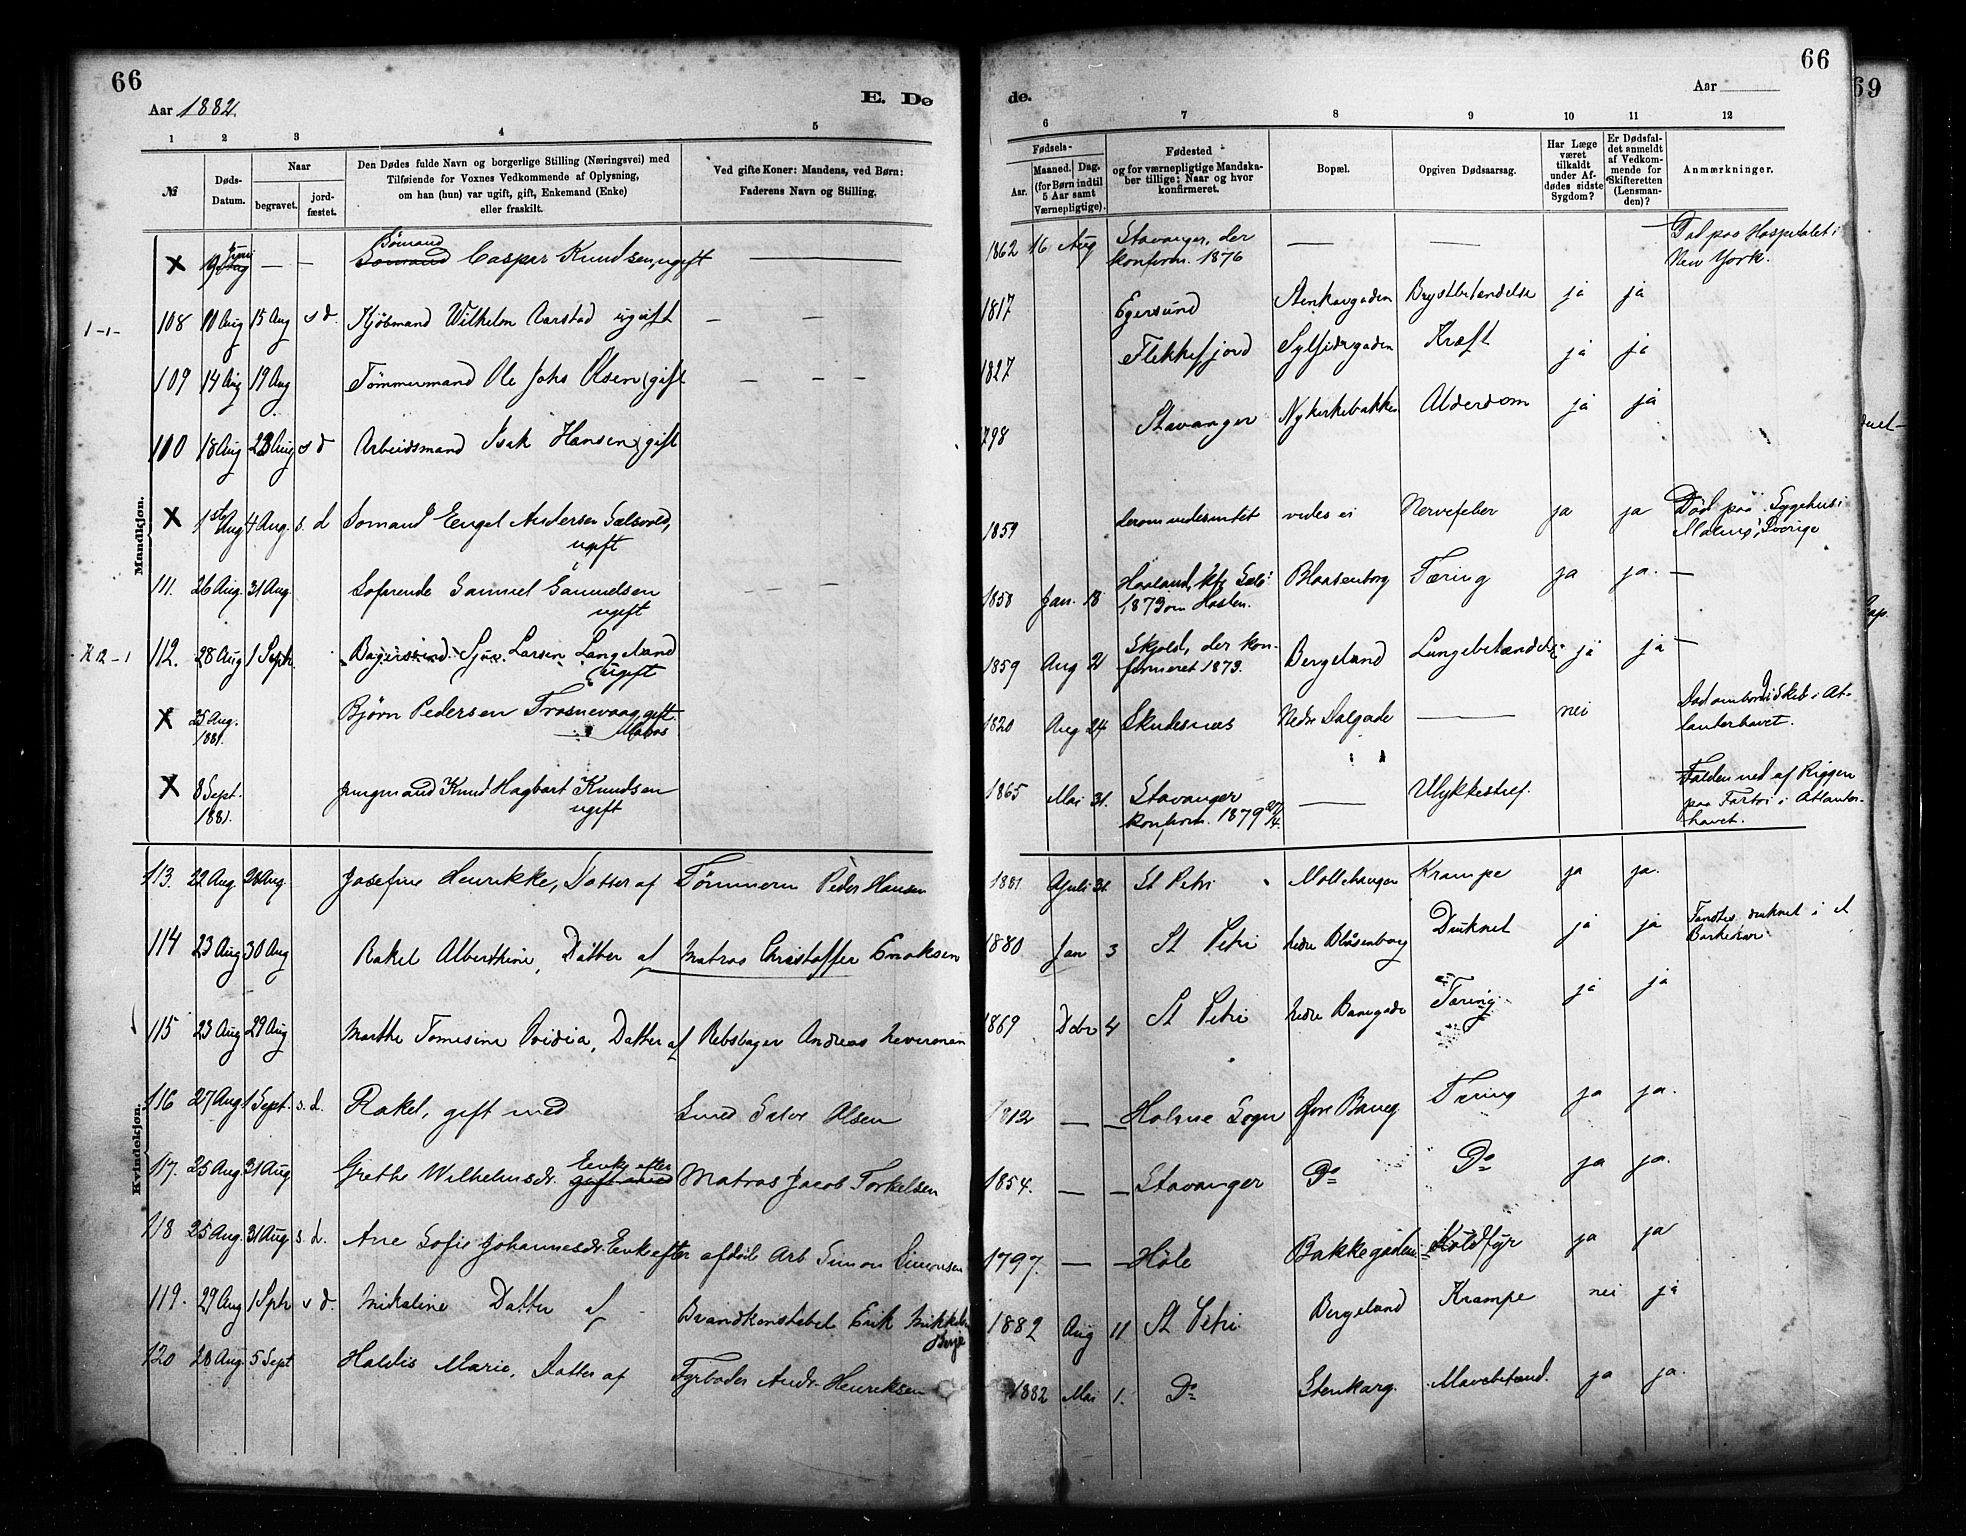 66
Aar 1882.
E. Dø
1 2 3 4 5
№
Døds-
Datum.
Naar
begravet.
jord-
fæstet.
Den Dødes fulde Navn og borgerlige Stilling (Næringsvei) med
Tilføiende for Voxnes Vedkommende af Oplysning,
om han (hun) var ugift, gift, Enkemand (Enke)
eller fraskilt.
Ved gifte Koner: Mandens, ved Børn:
Faderens Navn og Stilling.
Mandkjøn.
X Sømand Caspar Knudsen, ugift
108 11 Aug 15 Aug s d. Kjøbmand Wilhelm Aarstad ugift
109 14 Aug 19 Aug Tømmermand Ole Johs Olsen gift
110 18 Aug 23 Aug s d Arbeidsmand Isak Hansen gift
X 1ste Aug 4 Aug. s. d Sømand Engel Andersen
ugift
111. 26 Aug. 31 Aug. Sofarende Samuel Samuelsen
ugift
112. 28 Aug 1 Septr. Larsen Langeland
ugift
X 25 Aug. 1881. Bjørn Pedersen gift
X 8 Sept. 1881. Jungmand Knud Hagbart Knudsen
ugift
Kvindekjøn.
113. 22 Aug. 28 Aug. Josefine Henrikke, Datter af Tømmerm Peder Hansen
114 23 Aug 30 Aug Rakel Alberthine, Datter af Matros Christoffer Enoksen
115 23 Aug 29 Aug Marthe Tomesine Ovidia, Datter af Rebslager Andreas
116 27 Aug 1 Sept. s. d. Rakel, gift med Smed Olsen
117. 25 Aug. 31 Aug Grethe Wilhelmsdr. Enke efter Matros Jacob Torkelsen
118 25 Aug. 31 Aug. s. d. Ane Sofie Johannesdr. Enke efter afdøde Arb Simon Simonsen
119. 29 Aug 1 Sptr s d. Mikaline Datter af Brandkonstabel Erik
120 28 Aug. 5 Sept Haldis Marie, Datter af Fyrbøder Andr. Henriksen
66
de.
Aar
6 7 8 9 10 11 12
Fødsels-
Aar.
Maaned. Dag.
(for Børn indtil
5 Aar samt
Værnepligtige).
Fødested
og for værnepligtige Mandska-
ber tillige: Naar og hvor
konfirmeret.
Bopæl.
Opgiven Dødsaarsag.
Har Læge
været
tilkaldt
under Af-
dødes sidste
Sygdom?
Er Dødsfal-
det anmeldt
af Vedkom-
mende for
Skifteretten
(Lensman-
den)?
Anmærkninger.
1862 16 Aug Stavanger, der
konfirm. 1876
Død paa Hospitalet i
New York.
1817 Egersund Stenkargaden Brystbetændelse ja ja
1827 Flekkefjord Kræft ja ja
1798 Stavanger Nykirkebakken Alderdom ja ja
1859 vides ei Nervefeber ja ja Død paa Sygehus i
1858 Jan. 18 Blaasenborg Tæring ja ja.
1859 Aug 21 Skjold, der kon-
firmeret 1873. Bergeland Lungebetændelse ja ja
1820 Aug 24 Skudesnæs Nedre Dalgade nei Død ombord i Skib i At-
lanterhavet.
1865 Mai 31. Stavanger
konfirm. 1879 27/4. Ulykkestilf. Falden ned af Riggen
paa Fartøi i Atlanter-
havet.
1881 St Petri Møllehaugen Krampe ja ja.
1880 Jan 3 St Petri nedre Blåsenborg Druknet ja ja
1869 Debr 4 St Petri nedre Banegade Tæring ja ja
1812 Holme Sogn Øvre Baneg. Tæring ja ja.
1854. Stavanger Do Do ja ja.
1797. Høle Bakkegaden Koldfyr ja ja
1882 Aug 11 St Petri Bergeland Krampe nei ja
1882 Mai 1. Do Stenkarg. Mavebetænd. ja ja.
69